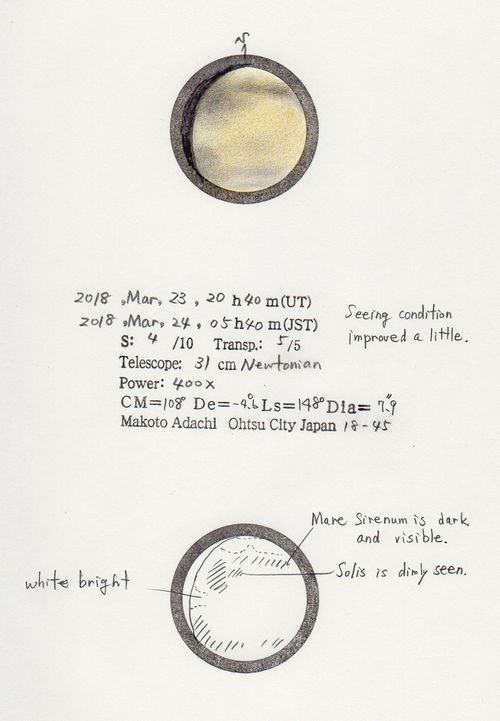 N
2018, Mar, 23, 20 h 40 m (UT)
2018, Mar, 24, 05 h 40 m (JST)
Seeing condition
improved a little.
S: 4 /10 Transp.: 5/5
Telescope: 31 cm Newtonian
Power: 400x
CM=108° De=-4.6° Ls=148° Dia=7.9"
Makoto Adachi Ohtsu City Japan 18-45
Mare Sirenum is dark
and visible.
Solis is dimly seen.
white bright